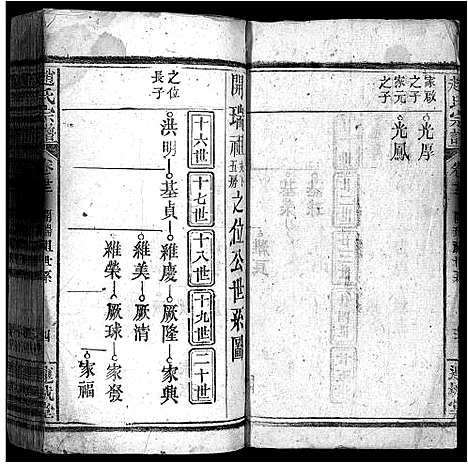 趙氏宗譜
家啟之子
光厚
家元之子
光鳳
開瑞祖
五房之位公世系圖
十六世
十七世
十八世
十九世
二十世
之位長子
洪明
基貞
維慶
厥隆
家典
維美
厥清
維榮
厥球
家發
家福
趙氏宗譜
四